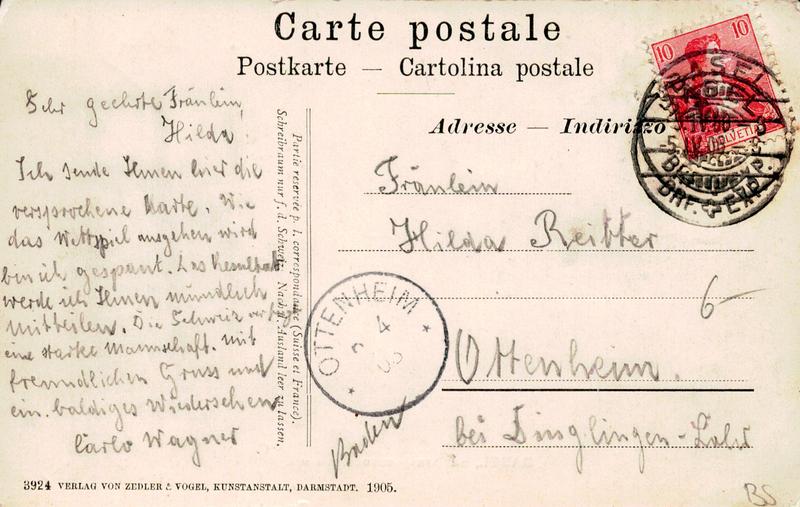 Carte postale
Postkarte — Cartolina postale
Adresse — Indirizzo
10 10
HELVETIA
BASEL
BRF. EXP.
Sehr geehrte Fräulein,
Hilda
Ich sende Ihnen hier die
versprochene Karte. Wie
das Wettspiel ausgehen wird
bin ich gespant. Das Resultat
werde ich Ihnen mündlich
mitteilen. Die Schweiz verfügt
eine starke Mannschaft. mit
freundlichen Gruss und
ein. baldiges Wiedersehen
Carlo Wagner
Partie réservée p. l. correspondance (Suisse et France).
Schreibraum nur f. d. Schweiz. Nach d. Ausland leer zu lassen.
Fräulein
Hilda Reitter
6
OTTENHEIM
4
Ottenheim.
bei Dinglingen-Lahr
Baden
3924 VERLAG VON ZEDLER & VOGEL, KUNSTANSTALT, DARMSTADT. 1905.
BS